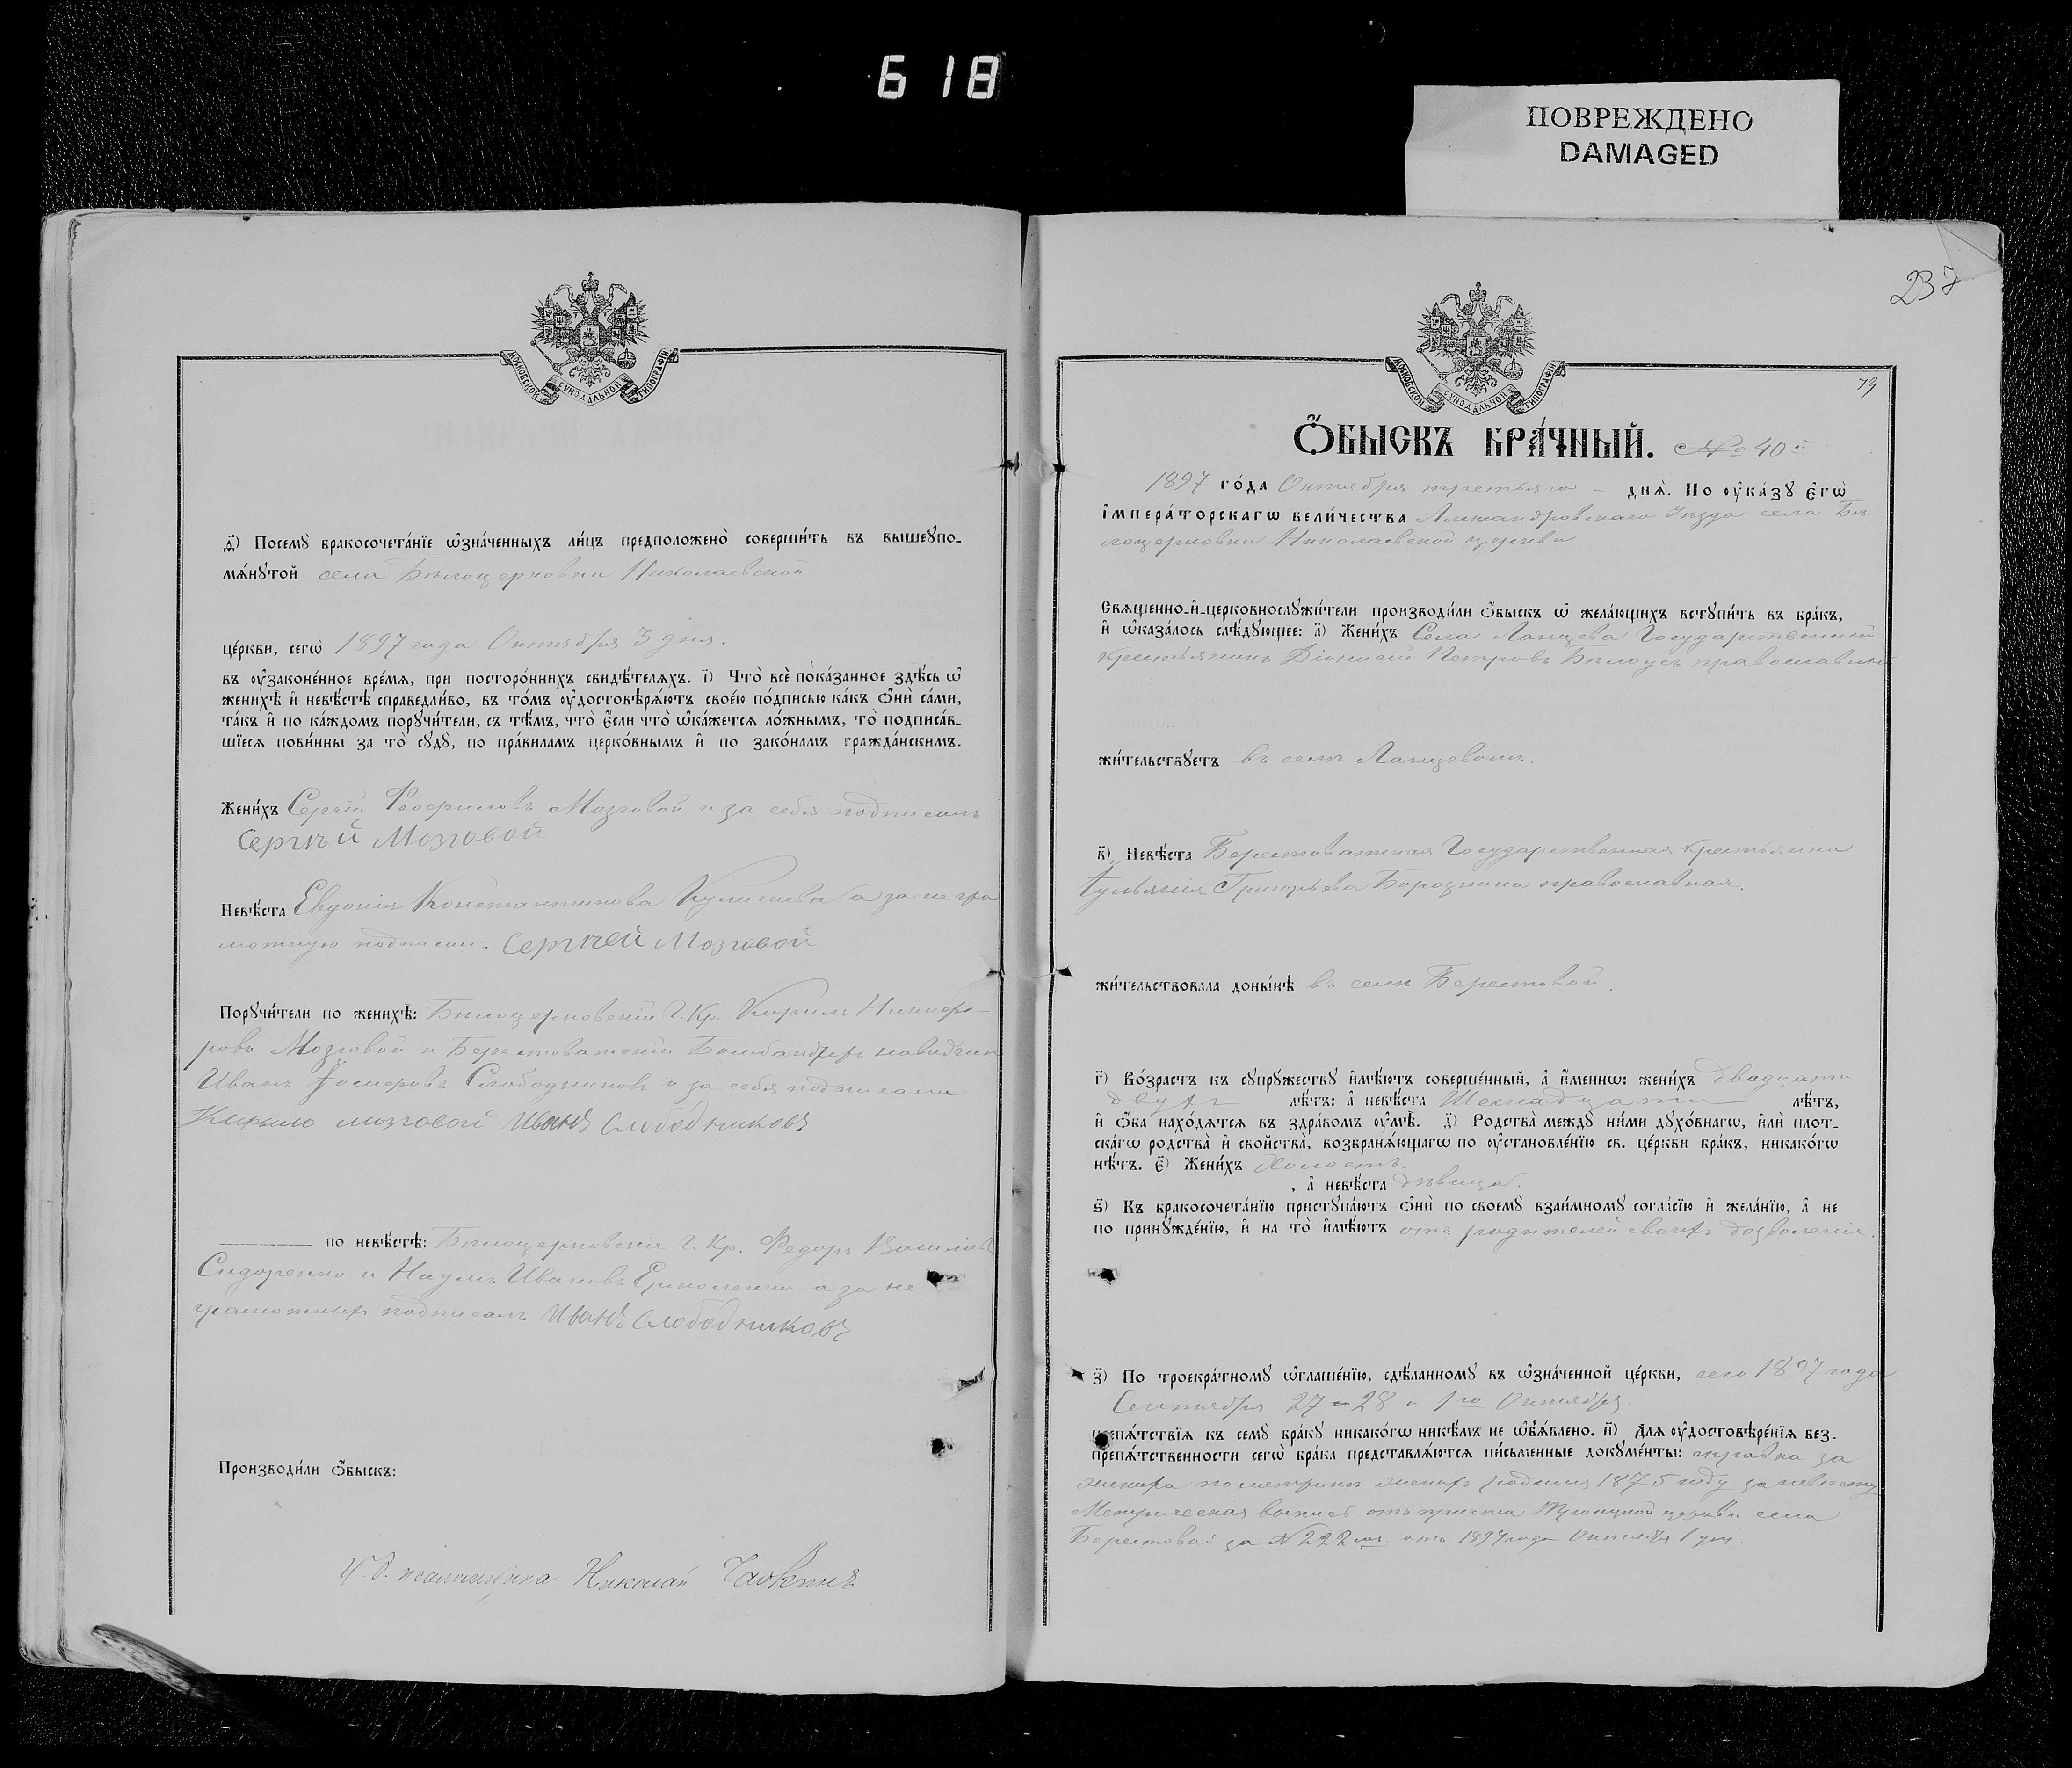 618
ПОВРЕЖДЕНО
DAMAGED
МОСКОВСКОЙ СѴНОДАЛЬНОЙ ТИПОГРАФІИ
д҃) Посемꙋ бракосочета́нїе ѡ҆зна́ченныхъ ли́цъ предположено̀ соверши́ть въ вышеꙋпо-
мѧ́нꙋтой села Бѣлоцерковки Николаевской
це́ркви, сегѡ̀ 1897 года Октября 3 дня.
въ ᲂу҆зако́ненное вре́мѧ, при посторо́ннихъ свидѣ́телѧхъ. і҃) Что̀ всѐ пока́занное здѣ́сь ѡ҆
женихѣ̀ и҆ невѣ́стѣ справедли́во, въ то́мъ ᲂу҆достовѣрѧ́ютъ свое́ю по́дписью ка́къ ѻ҆нѝ са́ми,
та́къ и҆ по ка́ждомъ порꙋчи́тели, съ тѣ́мъ, что̀ є҆́сли что̀ ѡ҆ка́жетсѧ ло́жнымъ, то̀ подписа́в-
шїесѧ пови́нны за то̀ сꙋдꙋ̀, по пра́виламъ церко́внымъ и҆ по зако́намъ гражда́нскимъ.
Жени́хъ Сергій Феофиловъ Мозговой и за себя подписалъ
Сергѣй Мозговой
Невѣ́ста Евдокія Константинова а за негра
мотную подписалъ Сергѣей Мозговой
Порꙋчи́тели по женихѣ̀: Бѣлоцерковскій Г. Кр. Кирилъ Никифо-
ровъ Мозговой и Берестоватскій Бомбандиръ наводчик
Иванъ Слободчиковъ и за себя подписали
Кирыло мозговой Иванъ Слободчиковъ
по невѣ́стѣ: Бѣлоцерковскіе Г. Кр. Федоръ Василіевъ
Сидоренко и Наумъ Ивановъ Ермоленко а за не
грамотныхъ подписалъ Иванъ Слободчиковъ
Производи́ли ѻ҆́быскъ:
И. д. псаломщика Николай
237
МОСКОВСКОЙ СѴНОДАЛЬНОЙ ТИПОГРАФІИ
79
Ѻ҆́БЫСКЪ БРА́ЧНЫЙ. № 40й
1897 го́да Октября третьяго - днѧ̀. По ᲂу҆ка́зꙋ є҆гѡ̀
і҆мпера́торскагѡ вели́чества Александровскаго Уѣзда села Бѣ-
лоцерковки Николаевской церкви
Свѧщенно-и҆-церковнослꙋжи́тели производи́ли ѻ҆́быскъ ѡ҆ жела́ющихъ встꙋпи́ть въ бра́къ,
и҆ ѡ҆каза́лось слѣ́дꙋющее: а҃) Жени́хъ Села Ланцева Государственный
крестьянинъ Діонисій Петровъ Бѣлоусъ православный
жи́тельствꙋетъ въ селѣ Ланцевомъ.
в҃) Невѣ́ста Берестоватская Государственная крестьянка
Іульянія Григорьева православная.
жи́тельствовала донынѣ въ селѣ Берестовой.
г҃) Во́зрастъ къ сꙋпрꙋ́жествꙋ и҆мѣ́ютъ соверше́нный, а҆ и҆́меннѡ: жени́хъ двадцати
двухъ лѣ́тъ: а҆ невѣ́ста Шеснадцати лѣ́тъ,
и҆ ѻ҆́ба нахо́дѧтсѧ въ здра́вомъ ᲂу҆мѣ̀. д҃) Родства̀ междꙋ̀ ни́ми дꙋхо́внагѡ, и҆лѝ плот-
ска́гѡ родства̀ и҆ свойства̀, возбранѧ́ющагѡ по ᲂу҆становле́нїю св. це́ркви бра́къ, никако́гѡ
нѣ́тъ. є҃) Жени́хъ Холостъ.
, а҆ невѣ́ста дѣвица.
ѕ҃) Къ бракосочета́нїю пристꙋпа́ютъ ѻ҆нѝ по своемꙋ̀ взаи́мномꙋ согла́сїю и҆ жела́нїю, а҆ не
по принꙋжде́нїю, и҆ на то̀ и҆мѣ́ютъ отъ родителей своихъ дозволеніе.
з҃) По троекра́тномꙋ ѡ҆глаше́нїю, сдѣ́ланномꙋ въ ѡ҆зна́ченной це́ркви, сего 1897 года
Сентября 27 28 и 1го Октября.
препѧ́тствїѧ къ семꙋ̀ бра́кꙋ никако́гѡ никѣ́мъ не ѡ҆бъѧ́влено. и҃) Длѧ ᲂу҆достовѣре́нїѧ без-
препѧ́тственности сегѡ̀ бра́ка представлѧ́ютсѧ пи́сьменные докꙋме́нты: справка за
жениха по метрикѣ женихъ родился 1875 году за невѣсту
Метрическая выпись отъ причта Троицкой церкви села
Берестовой за № 222 отъ 1897 года Октября 1 дня.